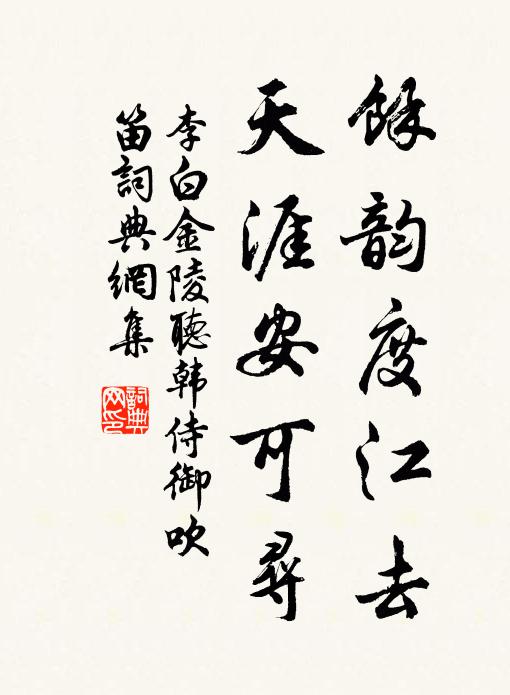 餘韵度江去
天涯安可尋
李白金陵聽韩侍御吹
笛詞典網集
詞典
网印